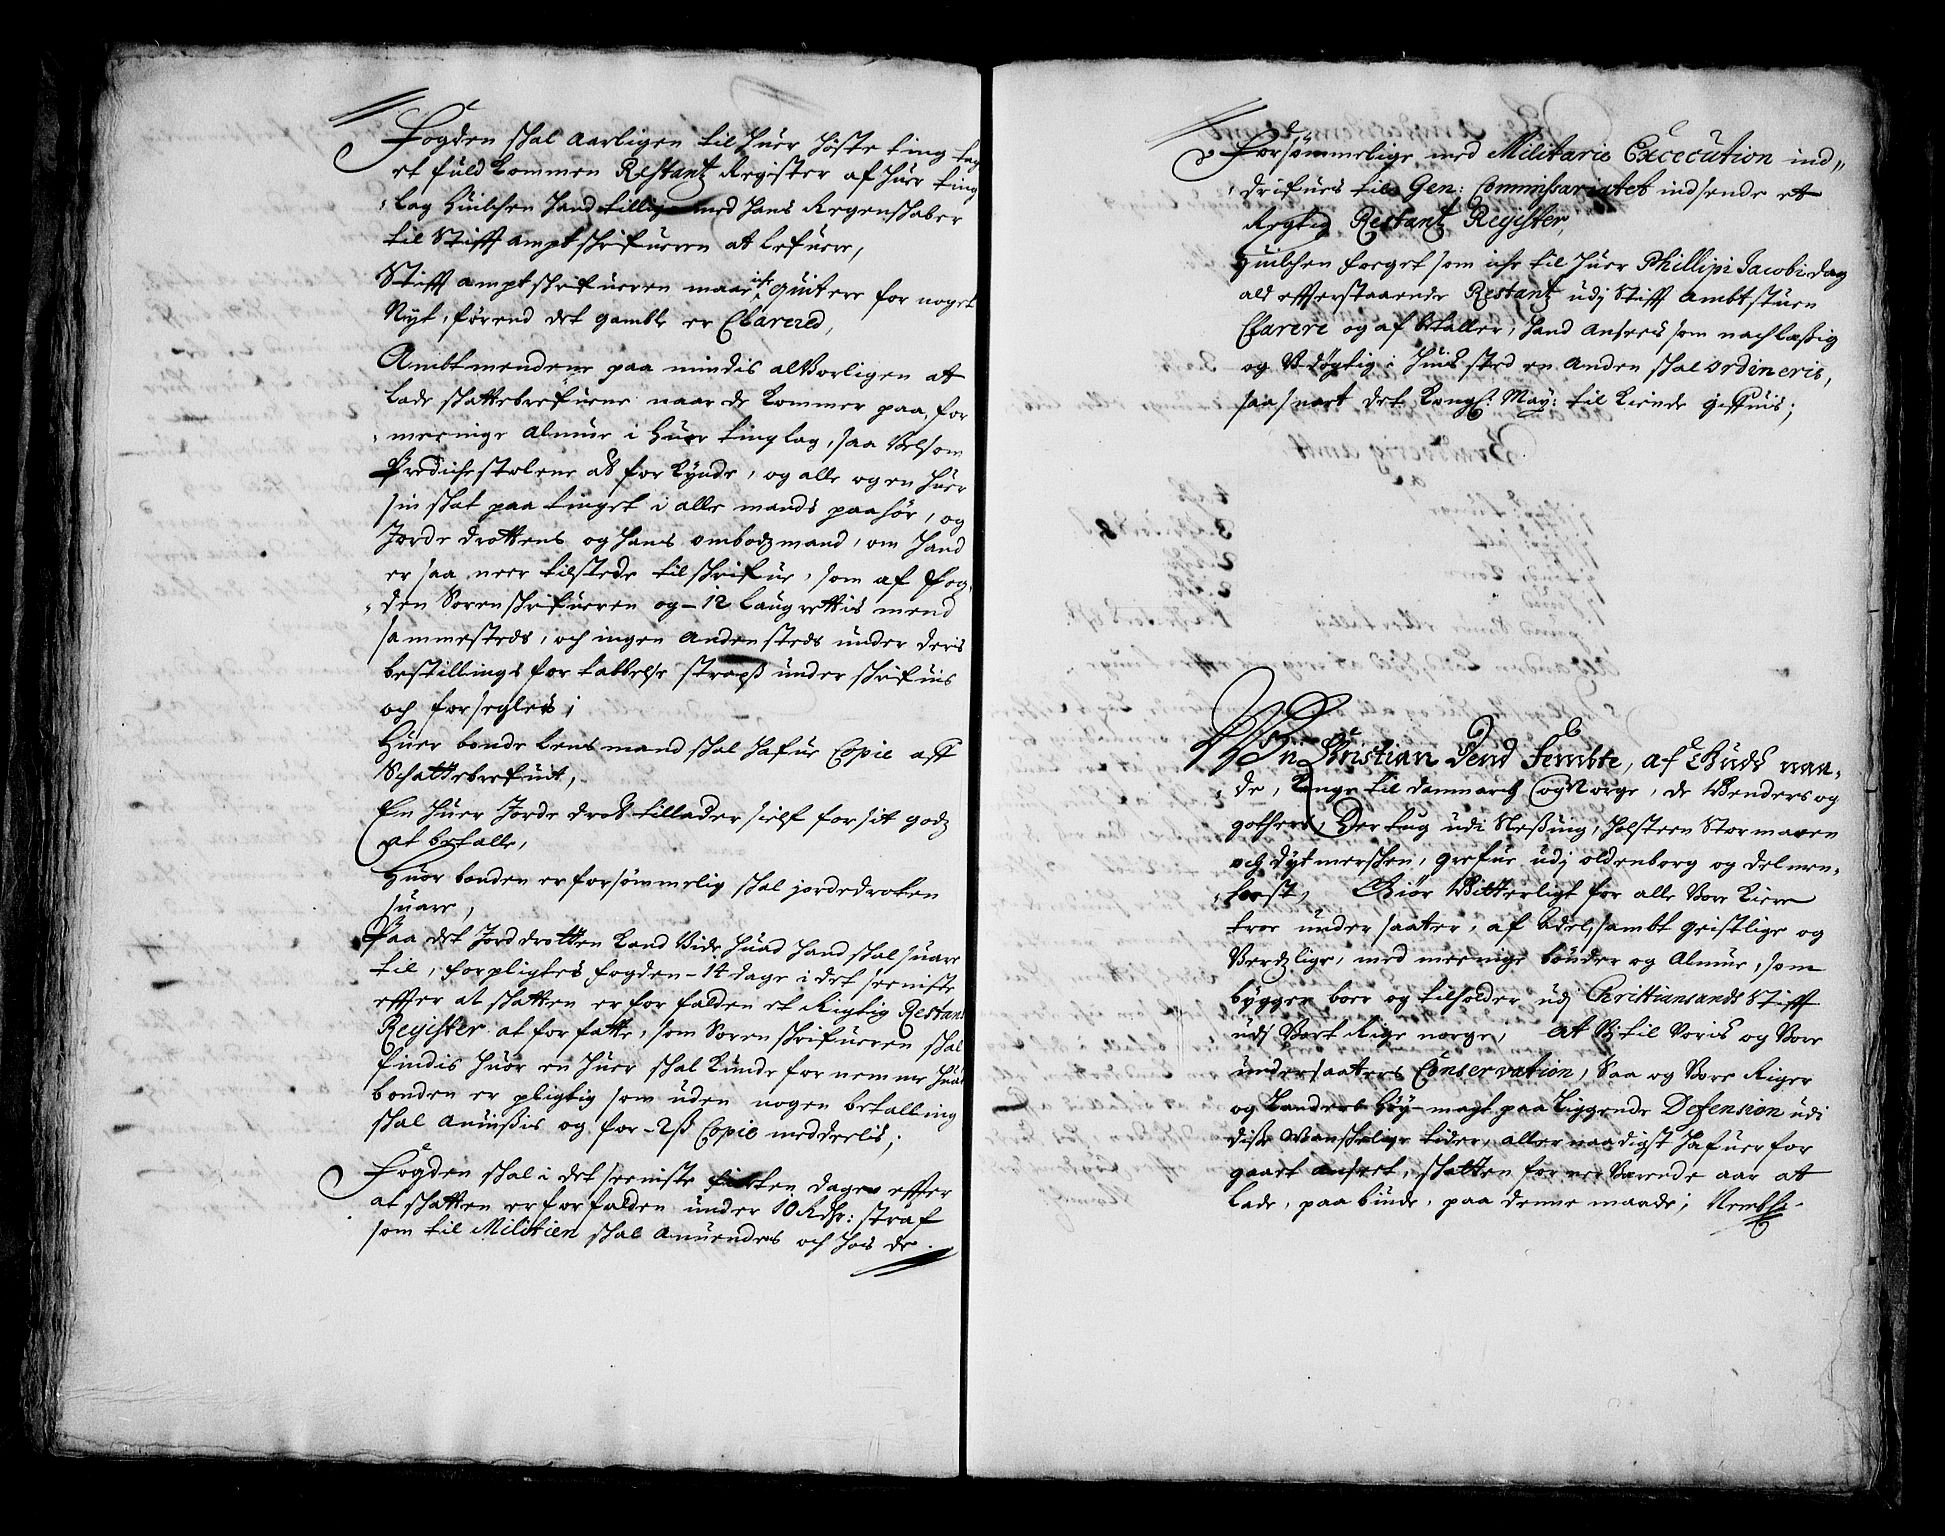 Fogden skal aarligen til huer höste ting tag
et fuldkommen Restantz Register af huer ting
lag huilchen hand tillige med hans Regenskaber
til Stifft amptskrifueren at lefuere,
Stifft amptskrifueren maae icke quitere for noget
Nyt, förend det gamble er Clarered,
Ambtmendene paa mindis alvorligen at
lade skattebrefuene naar de kommer paa, for
meenige almue i huer tinglag, saa velsom
Predichestolene at forkynde, og alle og en huer
sin skat paa tinget i alle mands paahör, og
Jorde drottens og hans ombodzmand, om hand
er saa neer tilstede tilskrifue, som af fog,
den Sorenskrifueren og 12 laugrettis mend
sammesteds, och ingen andensteds under deris
bestillings fortabbelse straff underskrifuis
och forseglis;
Huer bonde lensmand skal hafue Copie aff
Skattebrefuit,
En huer Jorde drot tillader sielf for sit godz
at betalle,
Huor bonden er forsömmelig skal jordedroten
suare,
Paa det Jorddrotten kand vide huad hand skal suare
til, forpligtes fogden 14 dage i det seeniste
effter at skatten er forfalden et Rigtig Restantz
Register at forfatte, som Sorenskrifueren skal
findis huor en huer skal kunde fornemme huad
bonden er pligtig som uden nogen betalling
skal anuisis og for 2ß Copie meddeelis;
Fogden skal i det seeniste fiorten dage effter
at skatten er forfalden under 10 Rdr: straf
som til Militien skal anuendes och hos de
Forsömmelige med Militarie Excecution ind,,
drifues til Gen: Commissariatet indsende et
Rigtig Restantz Register,
Huilchen foeget som icke til huer Phillipi Jacobi dag
ald effterstaaende Restantz udj Stifft Ambtstuen
Clarere og af betaller, hand ansees som nachlæßig
og udögtig i huis sted en anden skal ordineris,
saa snart det Kongl: May: til kiende giffuis;
Wj Christian Dend Fembte, af Guds naa,
de, Konge til Danmarck og Norge, de Wenders og
gothers, Hertug udi Sleßuig, Holsteen Stormaren
och Dytmerschen, grefue udj oldenborg og Delmen,
horst, Giör Witterligt for alle Vore kiere
troe undersaater, af Adel, sambt geistlige og
Verdzlige, med meenige bönder og Almue, som
bygger boer og tilholder udj Christiansands Stifft
udj Vort Rige norge, At Vi til Voris og Vore
undersaaters Conservation, Saa og Vore Riger
og Landers höy-magt paaliggende Defension udi
diße Wanskelige tider, allernaadigst hafuer for
gaat anseet, skatten for nerverende aar at
lade, paabiude, paa denne maade; Nembl: